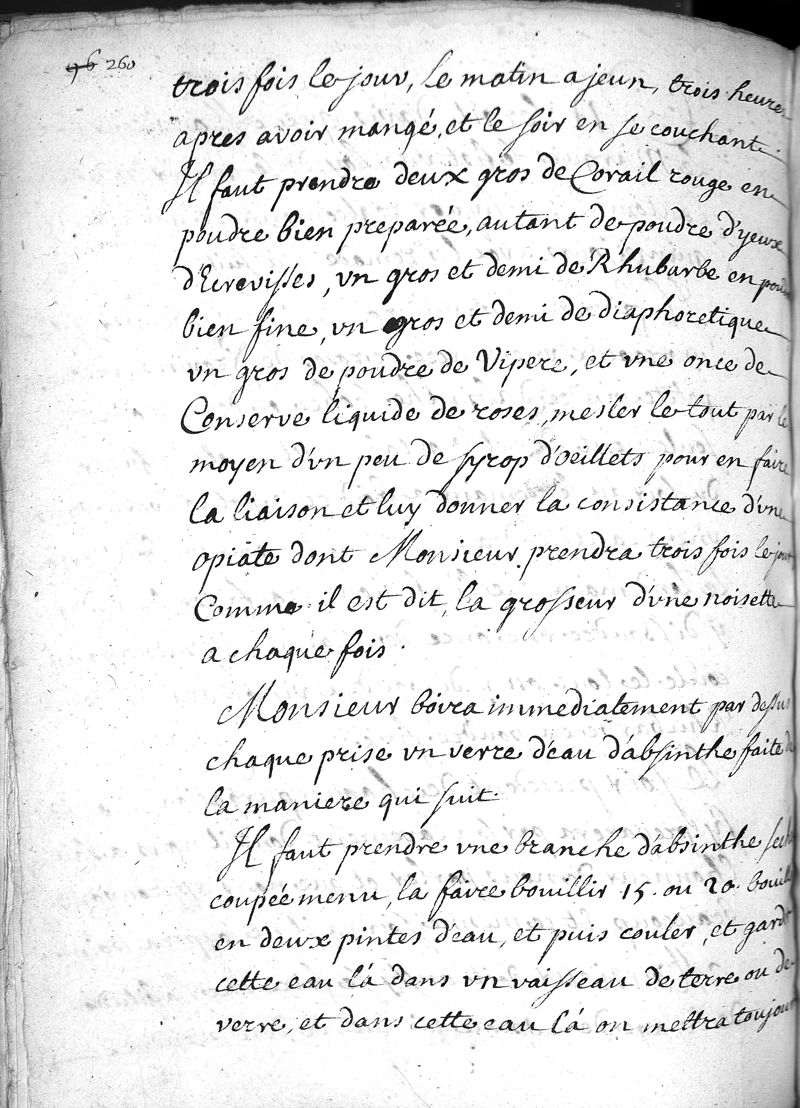 96 260
trois fois le jour, le matin a jeun, trois heures
apres avoir mangé, et le soir en se couchant.
Il faut prendre deux gros de Corail rouge en
poudre bien preparée, autant de poudre d'yeux
d'Ecrevisses, un gros et demi de Rhubarbe en poudre
bien fine, vn gros et demi de diaphoretique
vn gros de poudre de Vipere, et vne once de
Conserve liquide de roses, mesler le tout par le
moyen d'vn peu de syrop d'oeillets pour en faire
la liaison et luy donner la consistance d'vne
opiate dont Monsieur prendra trois fois le jour
Comme il est dit, la grosseur d'vne noisette
a chaque fois.
Monsieur boira immediatement par dessus
chaque prise vn verre d'eau d'absinthe faite de
la maniere qui suit.
Il faut prendre vne branche d'absinthe
coupée menu, la faire bouillir 15. ou 20. bouill
en deux pintes d'eau, et puis couler, et gard
cette eau là dans vn vaisseau de terre ou de
verre, et dans cette eau là on mettra toujours